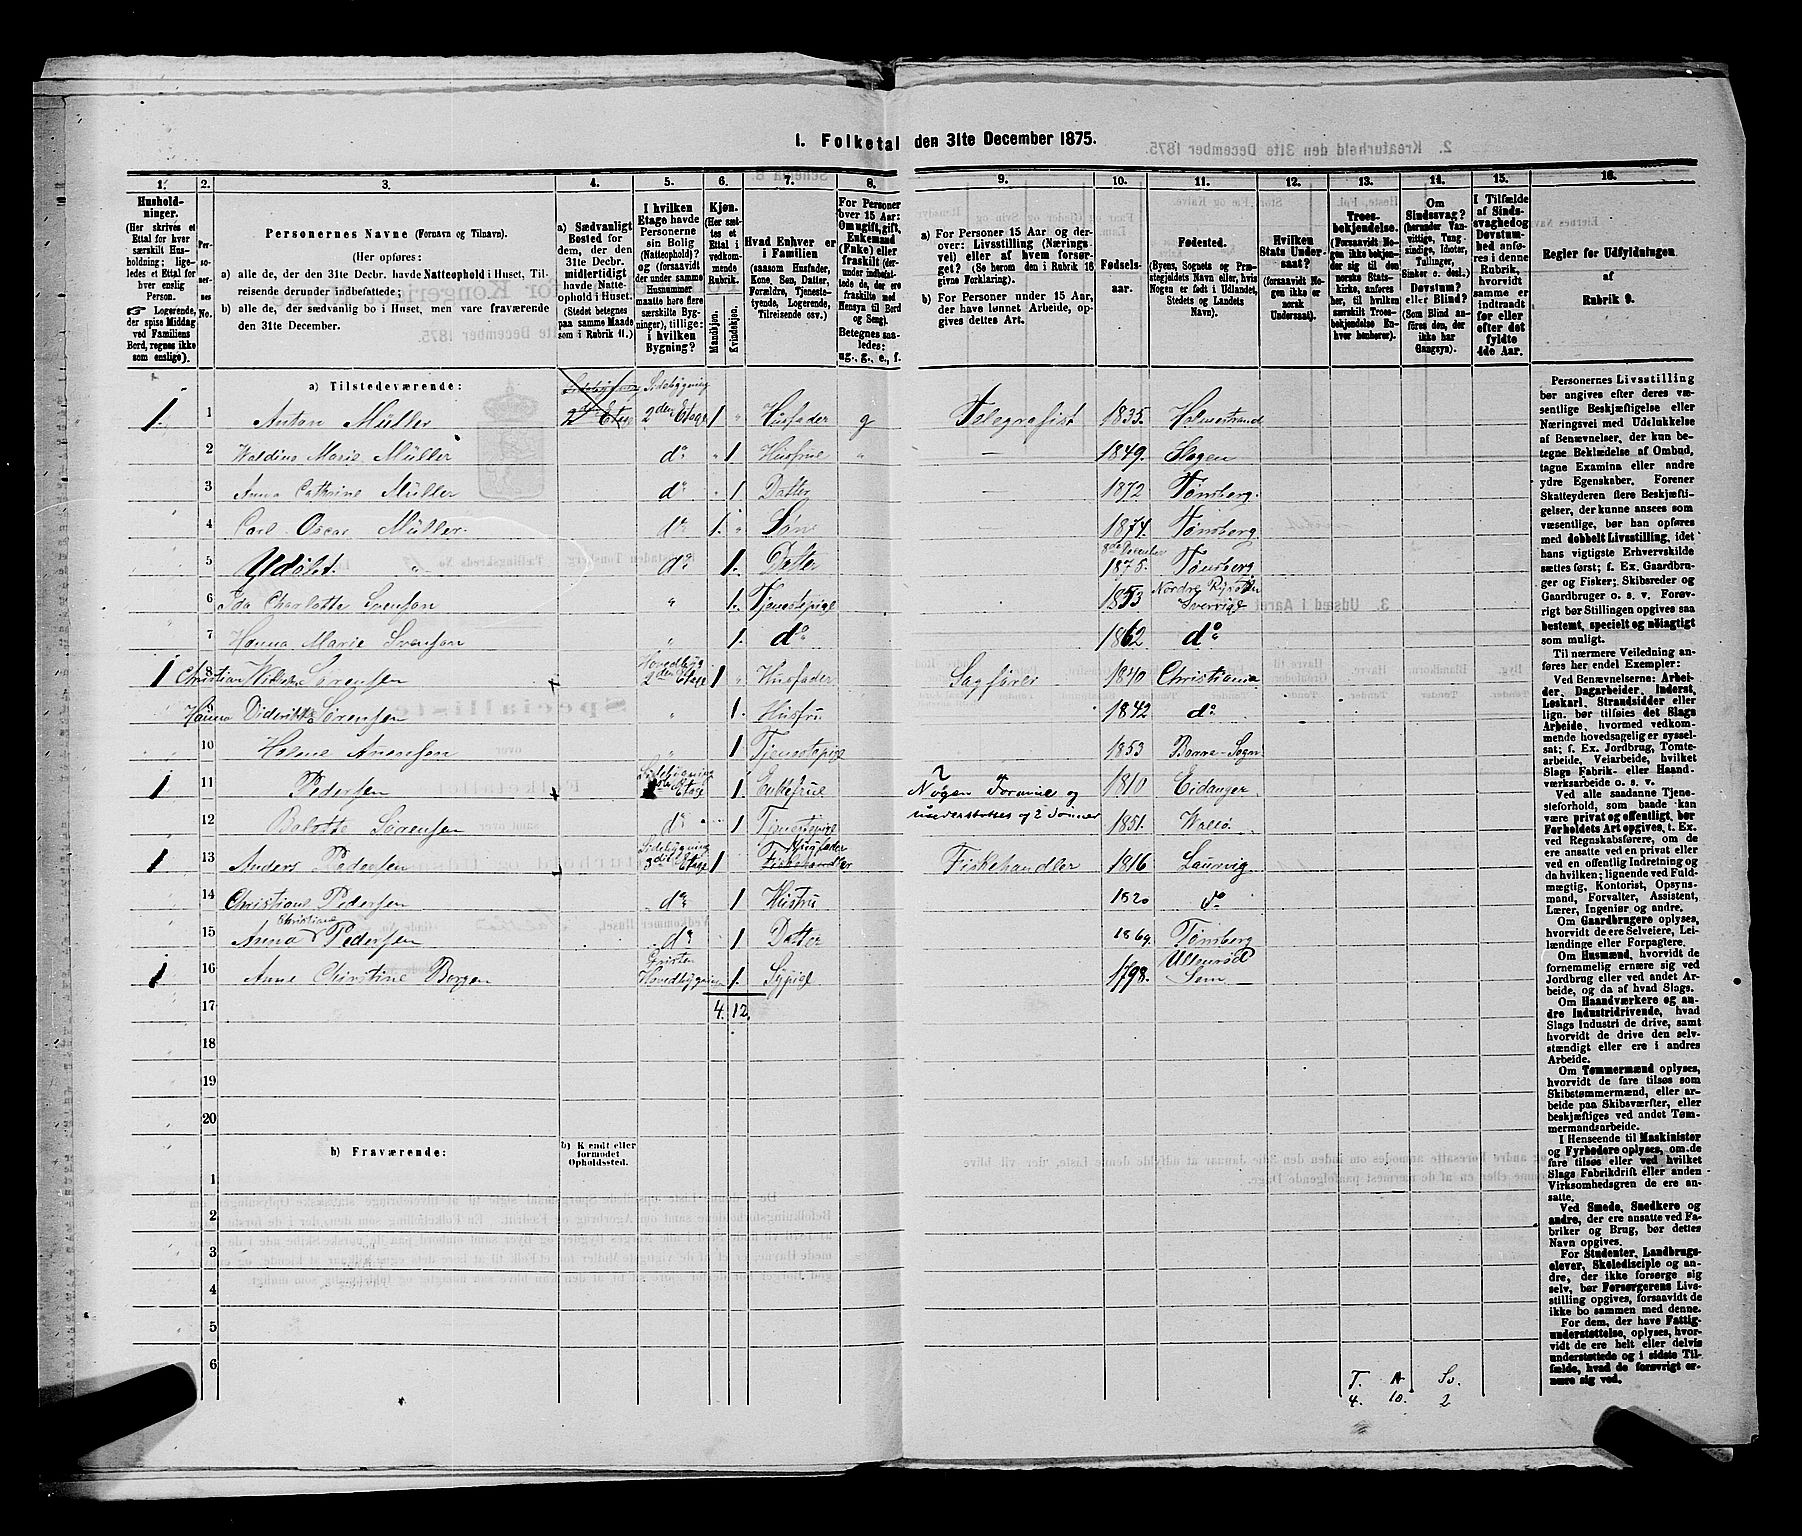 1. Folketal den 31te December 1875.
1. 2. 3. 4. 5. 6. 7. 8. 9. 10. 11. 12. 13. 14. 15. 16.
Husholdninger.
(Her skrives et
Ettal for hver
særskilt Husholdning;
ligeledes et Ettal for
hver enslig
Person.
☞ Logerende,
der spise Middag
ved Familiens
Bord, regnes ikke
som enslige).
Personernes No.
Personernes Navne (Fornavn og Tilnavn).
(Her opføres:
a) alle de, der den 31te Decbr. havde Natteophold i Huset, Tilreisende derunder indbefattede;
b) alle de, der sædvanlig bo i Huset, men vare fraværende
den 31te December.
a) Sædvanligt
Bosted for
dem, der den
31te Decbr.
midlertidigt
havde Natteophold i Huset.
(Stedet betegnes
paa samme Maade
som i Rubrik 11.)
I hvilken
Etage havde
Personerne
sin Bolig
(Natteophold)?
og (forsaavidt
under samme
Husnummer
maatte høre flere
særskilte Bygninger), tillige:
i hvilken
Bygning?
Kjøn.
(Her sættes et
Ettal i
vedkommende
Rubrik.
Mandkjøn.
Kvindekjøn.
Hvad Enhver er
i Familien
(saasom Husfader,
Kone, Søn, Datter,
Forældre, Tjenestetyende, Logerende,
Tilreisende osv.)
For Personer
over 15 Aar:
Om ugift, gift,
Enkemand
(Enke) eller
fraskilt (derunder indbefattede de, der ere
fraskilte med
Hensyn til Bord
og Seng).
Betegnes saaledes:
ug., g., e., f.
a) For Personer 15 Aar og derover: Livsstilling (Næringsvei) eller af hvem forsørget? (Se herom den i Rubrik 16
givne Forklaring).
b) For Personer under 15 Aar,
der have lønnet Arbeide, opgives dettes Art.
Fødselsaar.
Fødested.
(Byens, Sognets og Præstegjeldets Navn eller, hvis
Nogen er født i Udlandet,
Stedets og Landets
Navn).
Hvilken
Stats Undersaat?
(forsaavidt
Nogen ikke er
norsk
Undersaat).
Troesbekjendelse.
(Forsaavidt Nogen ikke bekjender sig til den
norske Statskirke, anføres her, til hvilken
særskilt Troesbekjendelse Enhver henhører).
Om
Sindssvag?
(herunder Vanvittige, Tungsindige, Idioter,
Tullinger,
Sinker o. desl.)
Døvstum?
eller Blind?
(Som Blind anføres den, der
ikke har
Gangsyn).
I Tilfælde
af Sindssvaghed og
Døvstumhed anføres i denne
Rubrik,
hvorvidt
samme er
indtraadt
før eller
efter det
fyldte
4de Aar.
Regler for Udfyldningen
af
Rubrik 9.
a) Tilstedeværende:
1. 1 Anton Müller 2den Etage Sidebygning 2den Etage 1 " Husfader g Telegrafist 1835. Holmestrand
2 Marie Müller do " 1 Husfrue " — 1849. Slagen
3 Anna Cathrine Müller do " 1 Datter — 1872 Tønsberg.
4 Carl Oscar Müller. do 1. " Søn — 1874. Tønsberg.
5 Udøbt. " do 1. Datter 8de December 1875. Tønsberg
6 Ida Charlotte Svenson " 1. Tjenestepige 1853 Nordre Sverrige
7 Hanna Marie Svenson " 1. do 1862 do
1 8 Christian Sørensen Hovedbyg 2den Etage 1 " Husfader Sagfører 1840 Christiania
9 Hanna Diderikke Sørensen " 1. Husfru 1842 do
10 " 1 Tjenestepige 1853 Borre Sogn
1 11 Pedersen Sidebygning Etage 1. Enkefrue Nogen Formue og understøttes af 2 Sønner 1810 Eidanger
12 Sørensen do 1 Tjenestepige 1851. Vallø
1 13 Anders Pedersen Sidebygning Etage 1 Husfader Fiskehandler Fiskehandler 1816 Laurvig
14 Christiane Pedersen do 1 Hustru 1820 do
15 Anna Christiane Pedersen do 1 Datter 1869 Tønsberg
1 16 Anne Christine Bergen Hovedbygningen 1. Sypige 1798. Sem
17 4. 12.
18
19
20
b) Fraværende:
b) Kjendt eller
formodet
Opholdssted.
1
2
3
4
5
6
T. A Sv.
4. 10. 2
Personernes Livsstilling
bør angives efter deres væsentlige Beskjæftigelse eller
Næringsvei med Udelukkelse
af Benævnelser, der kun betegne Beklædelse af Ombud,
tagne Examina eller andre
ydre Egenskaber. Forener
Skatteyderen flere Beskjæftigelser, der kunne ansees som
væsentlige, bør han opføres
med dobbelt Livsstilling, idet
hans vigtigste Erhvervskilde
sættes først; f. Ex. Gaardbruger og Fisker; Skibsreder og
Gaardbruger o. s. v. Forøvrigt bør Stillingen opgives saa
bestemt, specielt og nøiagtigt
som muligt.
Til nærmere Veiledning anføres her endel Exempler:
Ved Benævnelserne: Arbeider, Dagarbeider, Inderst,
Løskarl, Strandsidder eller
lign. bør tilføies det Slags
Arbeide, hvormed vedkommende hovedsagelig er sysselsat; f. Ex. Jordbrug, Tomtearbeide, Veiarbeide, hvilket
Slags Fabrik- eller Haandværksarbeide o. s. v.
Ved alle saadanne Tjenesteforhold, som baade kan
være privat og offentligt, bør
Forholdets Art opgives, t. Ex.
ved Regnskabsførere, om de
ere ansatte ved en privat eller
en offentlig Indretning og
da hvilken; lignende ved Fuldmægtig, Kontorist, Opsynsmand, Forvalter, Assistent,
Lærer, Ingeniør og andre.
Om Gaardbrugere oplyses,
hvorvidt de ere Selveiere, Leilændinge eller Forpagtere.
Om Husmænd, hvorvidt de
fornemmelig ernære sig ved
Jordbrug eller ved andet Arbeide, og da af hvad Slags.
Om Haandværkere og andre Industridrivende, hvad
Slags Industri de drive, samt
hvorvidt de drive den selvstændigt eller ere i andres
Arbeide.
Om Tømmermænd oplyses,
hvorvidt de fare tilsøs som
Skibstømmermænd, eller arbeide paa Skibsværfter, eller
beskjæftiges ved andet Tømmermandsarbeide.
I Henseende til Maskinister
og Fyrbødere oplyses, om de
fare tilsøs eller ved hvilket
Slags Fabrikdrift eller anden
Virksomhedsgren de ere ansatte.
Ved Smede, Snedkere og
andre, der ere ansatte ved Fabriker og Brug, bør dettes
Navn opgives.
For Studenter, Landbrugselever, Skoledisciple og andre, der ikke forsørge sig
selv, bør Forsørgerens Livsstilling opgives, forsaavidt de
ikke bo sammen med denne.
For dem, der have Fattigunderstøttelse, oplyses, hvorvidt de ere helt eller delvis
understøttede og i sidste Tilfælde, hvad de forøvrigt ernære sig ved.